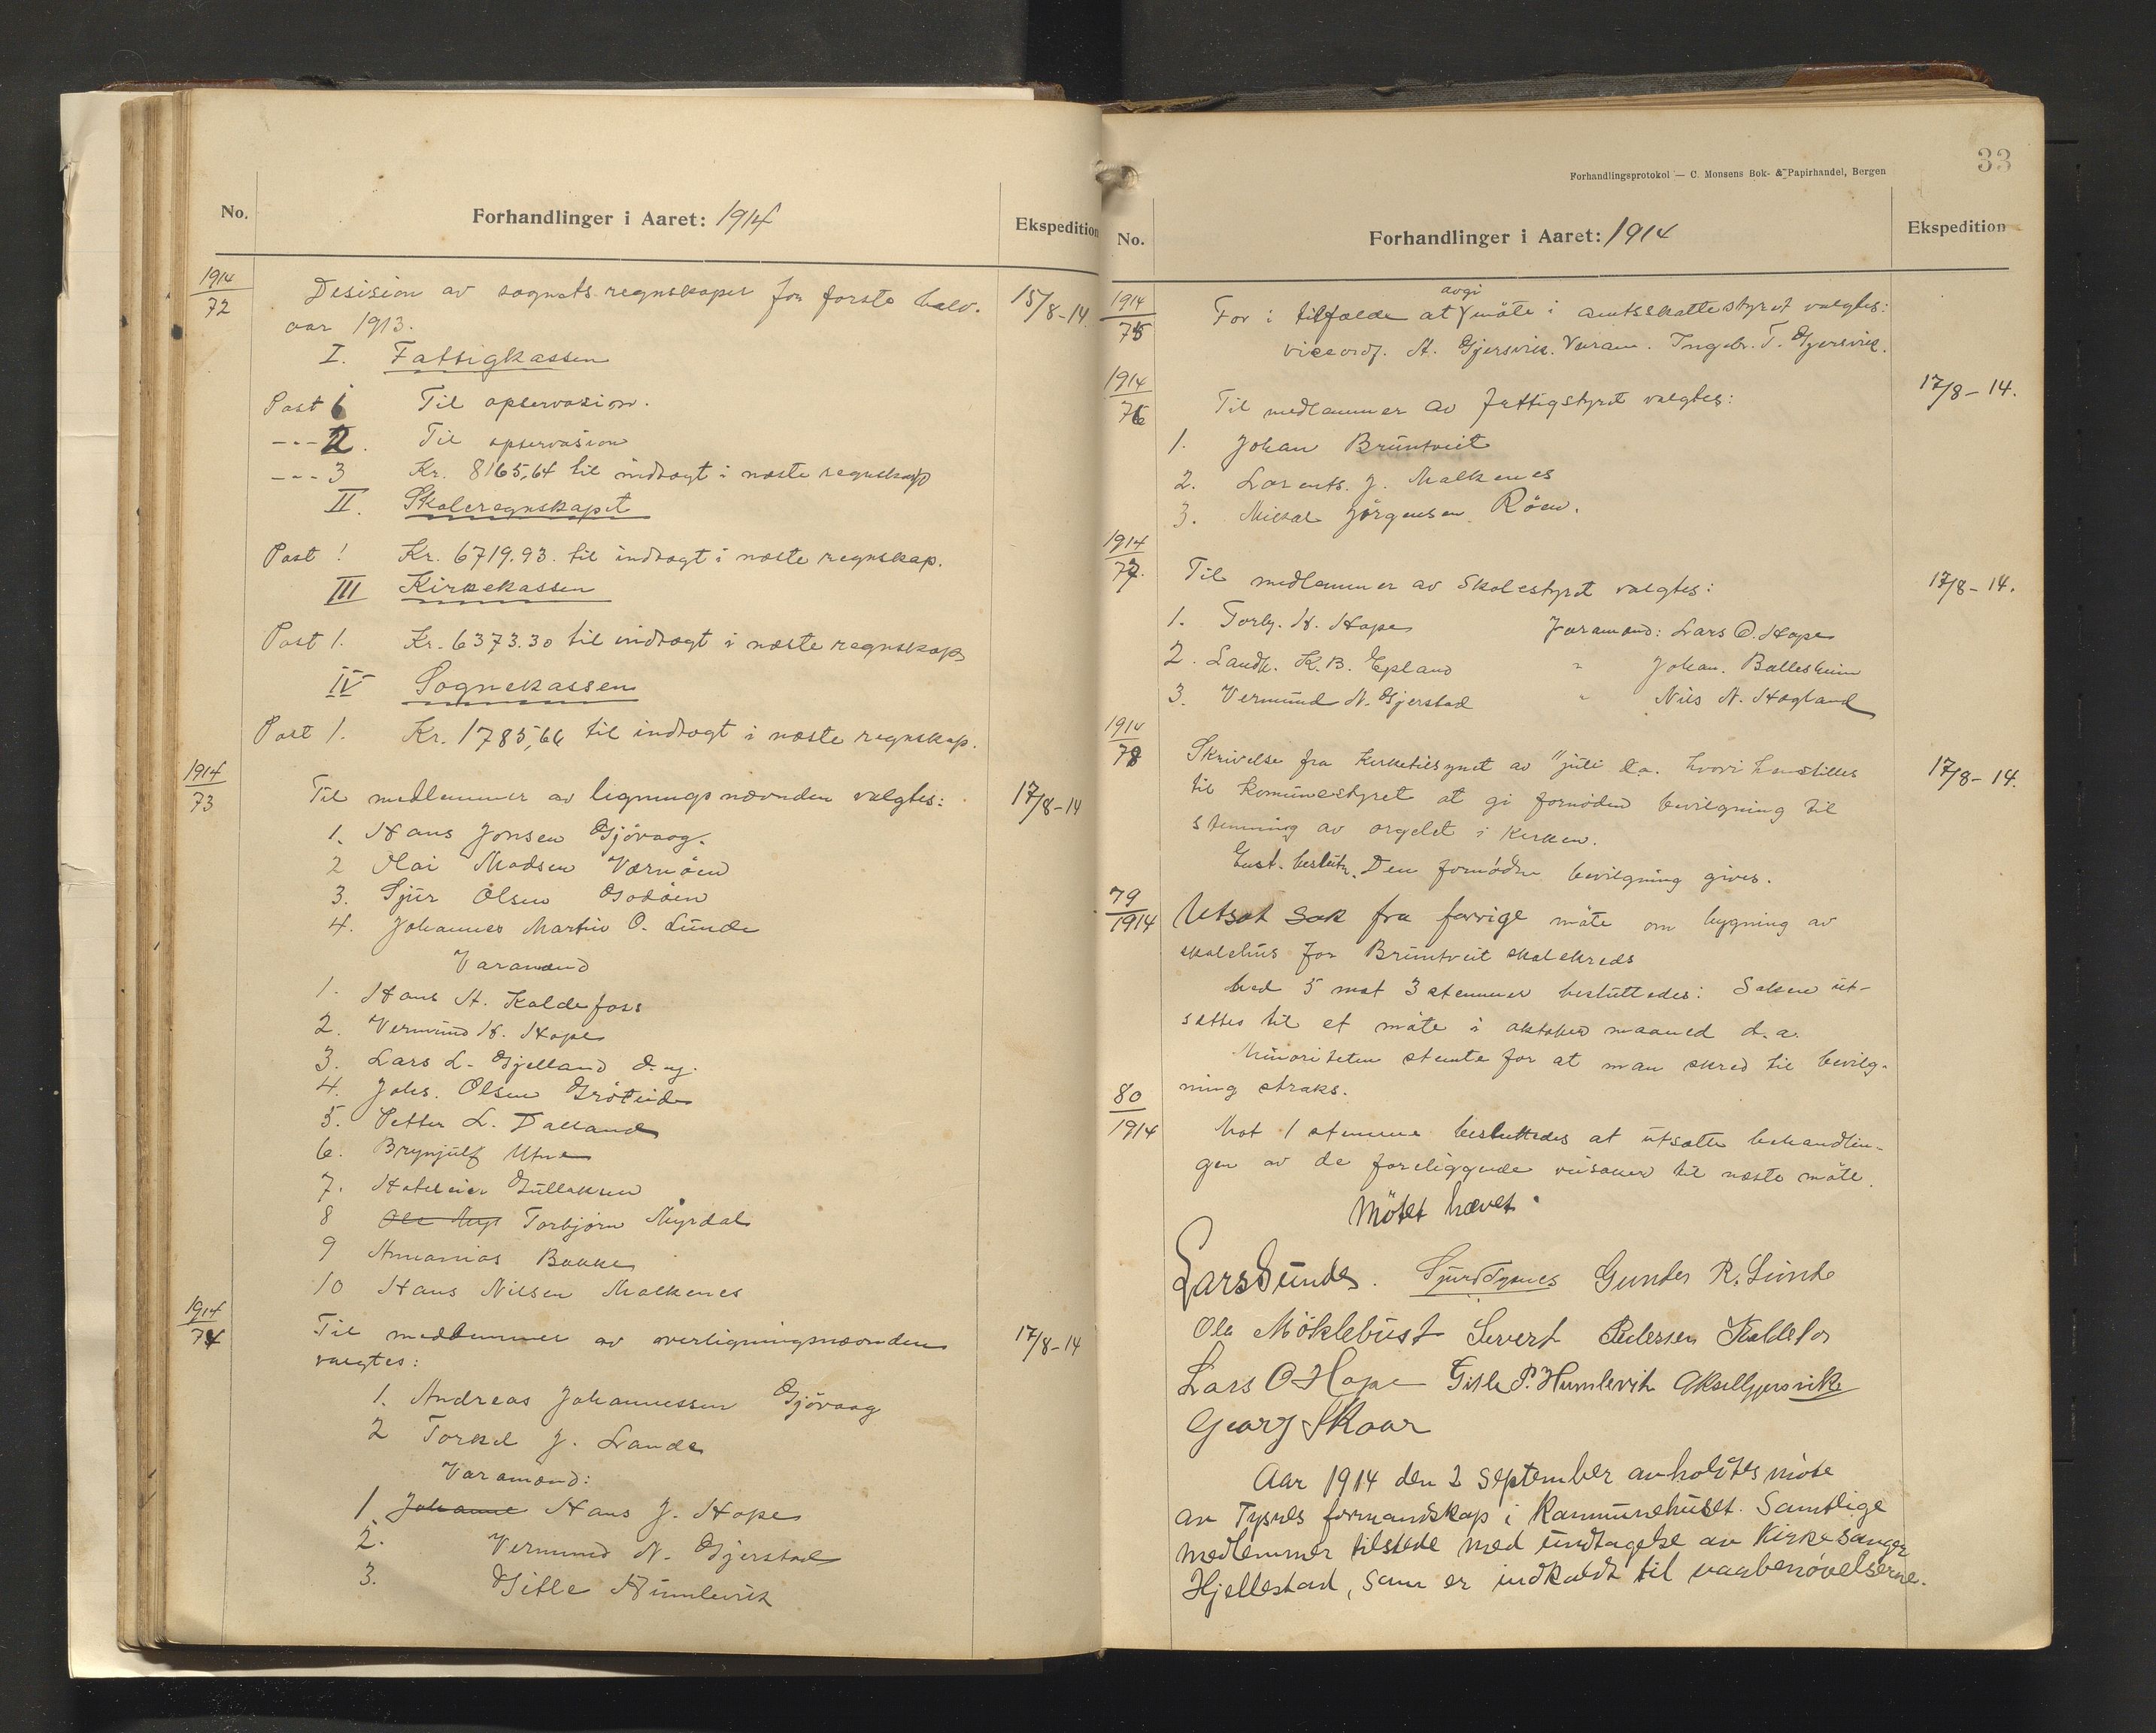 No.
Forhandlinger i Aaret: 1914
Ekspedition
1914
72
Desision av sognets regnskaper for første halv-
aar 1913.
15/8-14
I. Fattigkassen
Post 1 Til opservasion.
--- 2. Til opservasion
--- 3 Kr. 8165,64 til indtægt i næste regnskap
II. Skoleregnskapet
Post 1 Kr. 6719.93. til indtægt i næste regnskap.
III Kirkekassen
Post 1. Kr. 6373.30 til indtægt i næste regnskap
IV Sognekassen
Post 1. Kr. 1785,66 til indtægt i næste regnskap.
1914
73
Til medlemmer av ligningsnævnden valgtes:
17/8-14
1. Hans Jonsen Gjøvaag.
2 Olai Madsen Værnøen
3. Sjur Olsen Godøen
4. Johannes Martin O. Lunde
Varamænd
1. Hans H. Kaldefoss
2. Vermund H. Hope
3. Lars L. Gjelland d.y.
4. Johs. Olsen Grøteide
5. Petter L. Dalland
6. Brynjulf Utne
7. Hoteleier Gullaksen
8 Ole Myr Torbjørn Myrdal
9 Annanias Bakke
10 Hans Nilsen Malkenes
1914
74
Til medlemmer av overligningsnævnden
valgtes:
17/8-14
1. Andreas Johannessen Gjøvaag
2 Torkel J. Lande
Varamænd:
1. Johanne Hans J. Hope
2. Vermund N. Gjerstad
3. Gitle Humlevik
Forhandlingsprotokol — C. Monsens Bok- & Papirhandel, Bergen
33
No.
Forhandlinger i Aaret: 1914
Ekspedition
1914
75
avgi
For i tilfælde at møte i amtsskattestyret valgtes:
viceordf. A. Gjersvik. Varam. Ingebr. T. Gjersvik.
1914
76
Til medlemmer av fattigstyret valgtes:
17/8-14.
1. Johan Bruntveit
2. Lorents. J. Malkenes
3. Mikal Jørgensen Røen.
1914
77.
Til medlemmer av Skolestyret valgtes:
17/8-14.
1. Torbj. H. Hope Varamænd: Lars O. Hope
2. Landh. K. B. Epland " Johan. Ballesheim
3. Vermund N. Gjerstad " Nils N. Hogland
1914
78
Skrivelse fra Kirketilsynet av 11 juli d.a. hvori henstilles
17/8-14.
til Komunestyret at gi fornøden bevilgning til
stemning av orgelet i Kirken.
Enst. beslutn. Den fornødne bevilgning gives.
79
1914
Utsat sak fra forrige møte om bygning av
skolehus for Bruntveit skolekreds
Med 5 mot 3 stemmer besluttedes: Saken ut-
sættes til et møte i oktober maaned d.a.
Minoriteten stemte for at man skred til bevilg-
ning straks.
80
1914
Mot 1 stemme besluttedes at utsætte behandlin-
gen av de foreliggende veisaker til næste møte.
Møtet hævet.
Lars Sunde. Sjurd Tysnes Gunder R. Lunde
Ole Møklebust Severt Pedersen Kalletor
Lars O Hope Gitle P. Humlevik Aksel Gjersvik
Georg Skaar
Aar 1914 den 2 september avholdtes møte
av Tysnes formandskap i Kommunehuset. Samtlige
medlemmer tilstede med undtagelse av Kirkesanger
Hjellestad, som er indkaldt til vaabenøvelserne.